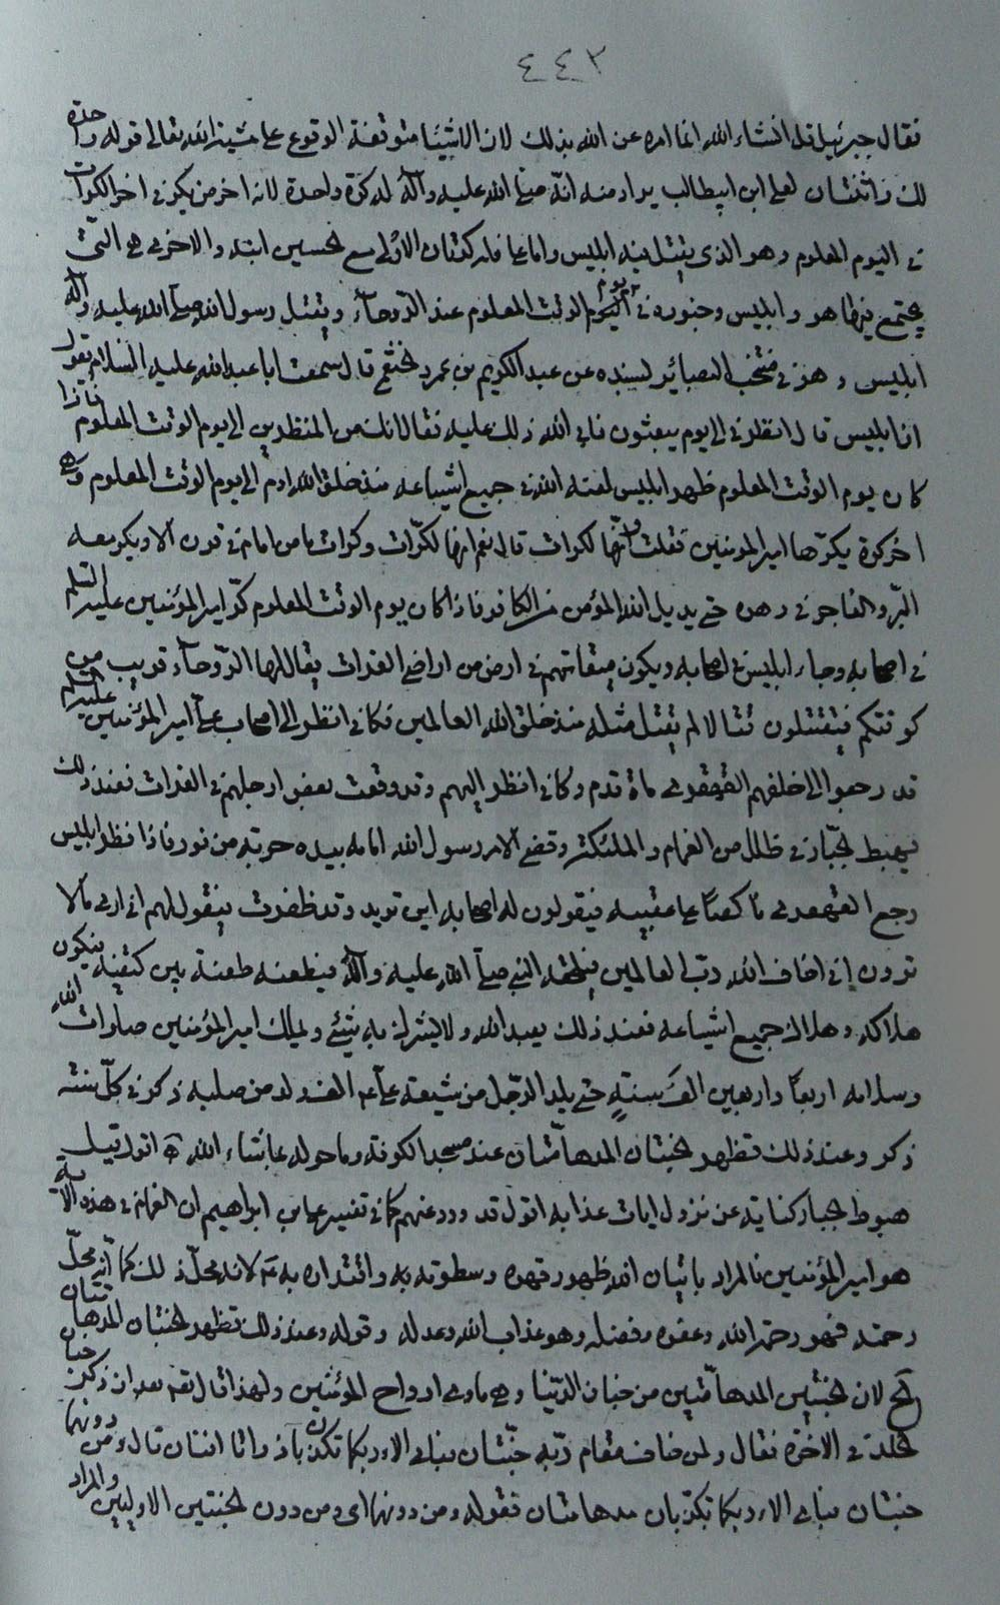 ٤٤٢
فقال جبرئيل قل انشاء الله انما امره عن الله بذلك لان الاشيئا متوقفة الوقوع على مشية الله تعالى قوله واحدة
لك وثنتان لعلي ابن ابيطالب يراد منه انه صلى الله عليه وآله له كرة واحدة لانه اخر من يكر في اخر الكرات
في اليوم المعلوم وهو الذي يقتل فيه ابليس واما علي فله كرتان الاولى مع الحسين ابنه والاخرى هي التي
يجتمع فيها هو وابليس وجنوده في يوم الوقت المعلوم عند الروحاء ويقتل رسول الله صلى الله عليه وآله
ابليس وهو في منتخب البصائر بسنده عن عبد الكريم بن عمرو الخثعمي قال سمعت ابا عبد الله عليه السلام يقول
ان ابليس قال انظرني الى يوم يبعثون فابى الله ذلك عليه فقال انك من المنظرين الى يوم الوقت المعلوم فاذا
كان يوم الوقت المعلوم ظهر ابليس لعنه الله في جميع اشياعه منذ خلق الله ادم الى يوم الوقت المعلوم وهي
اخر كرة يكرها امير المؤمنين فقلت وانها لكرات قال نعم انها لكرات وكرات ما من امام في قرن الا ويكر معه
البر والفاجر في دهره حتى يديل الله المؤمن من الكافر فاذا كان يوم الوقت المعلوم كر امير المؤمنين عليه السلم
في اصحابه وجاء ابليس في اصحابه ويكون ميقاتهم في ارض من اراضي الفرات يقال لها الروحاء قريب من
كوفتكم فيقتتلون قتالا لم يقتل مثله منذ خلق الله العالمين فكاني انظر الى اصحاب علي امير المؤمنين عليه السلام
قد رجعوا الى خلفهم القهقرى مائة قدم وكاني انظر اليهم وقد وقعت بعض ارجلهم في الفرات فعند ذلك
يهبط الجبار في ظلل من الغمام والملئكة وقضي الامر رسول الله امامه بيده حربة من نور فاذا نظر ابليس
رجع القهقرى ناكصا على عقبيه فيقولون له اصحابه اين تريد وقد ظفرت فيقول لهم اني ارى ما لا
ترون اني اخاف الله رب العالمين فيلحقه النبي صلى الله عليه وآله فيطعنه طعنة بين كتفيه فيكون
هلاكه وهلاك جميع اشياعه فعند ذلك يعبد الله ولا يشرك به شيئ ويملك امير المؤمنين صلوات الله
وسلامه اربعا واربعين الف سنة حتى يلد الرجل من شيعة علي الف ولد من صلبه ذكر في كل سنة
ذكر وعند ذلك تظهر الجنتان المدهامتان عند مسجد الكوفة وما حوله بما شاء الله اقول قيل
هبوط الجبار كناية عن نزول ايات عذابه اقول قد ورد عنهم كما في تفسير علي بن ابراهيم ان الغمام في هذه الاية
هو امير المؤمنين فالمراد باتيان الله ظهور قهره وسطوته به واقتداره به لانه محل ذلك كما انه محل
رحمته فهو رحمة الله وعفوه وفضله وهو عذاب الله وعدله وقوله وعند ذلك تظهر الجنتان المدهامتان
الخ لان الجنتين المدهامتين من جنان الدنيا وهي ماوى ارواح المؤمنين ولهذا قال تعم بعد ان ذكر جنان
الخلد في الاخرة فقال ولمن خاف مقام ربه جنتان فباي الاء ربكما تكذبان ذواتا افنان قال ومن دونهما
جنتان فباي الاء ربكما تكذبان مدهامتان فقوله ومن دونهما اى ومن دون الجنتين الاوليين والمراد